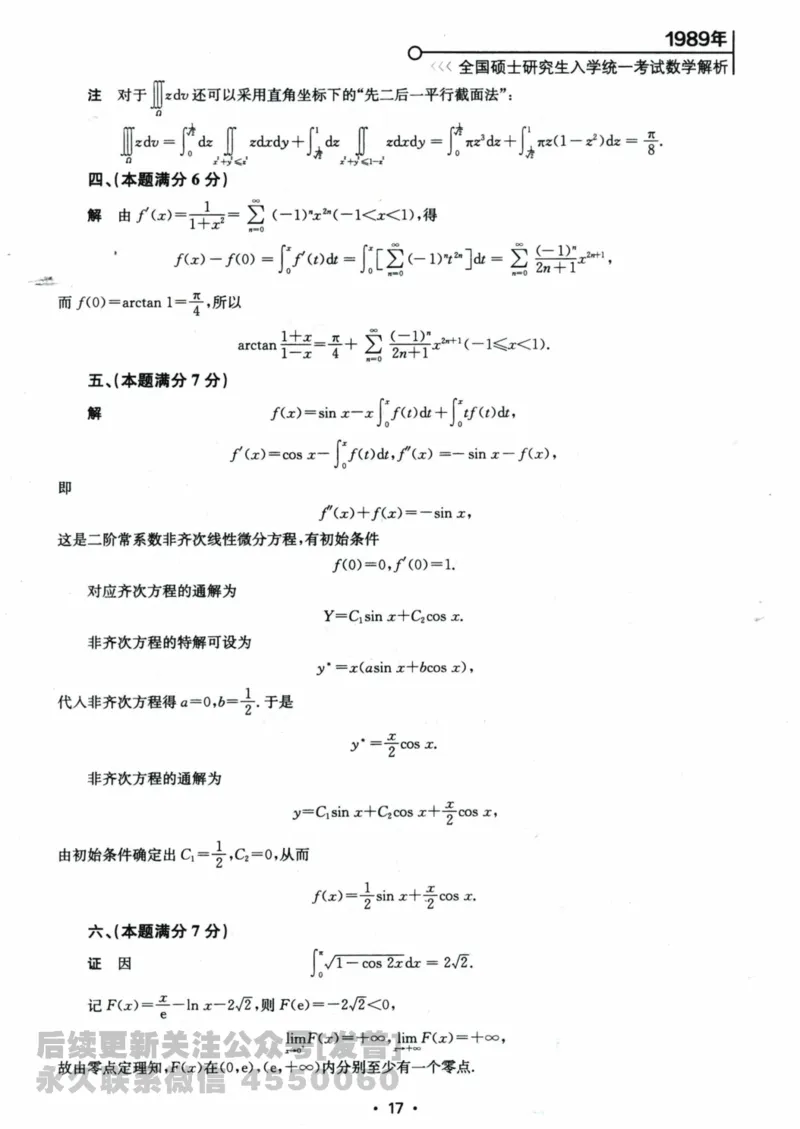 1989年
<<< 全国硕士研究生入学统一考试数学解析
注 对于∭_Ω zdv还可以采用直角坐标下的“先二后一平行截面法”:
∭_Ω zdv=∫_0^{1/√2} dz ∬_{x²+y²≤z²} zdxdy+∫_{1/√2}^1 dz ∬_{x²+y²≤1-z²} zdxdy=∫_0^{1/√2} πz³dz+∫_{1/√2}^1 πz(1-z²)dz=π/8.
四、(本题满分6分)
解 由f′(x)=1/(1+x²)=∑_{n=0}^∞ (-1)ⁿx²ⁿ(-1<x<1),得
f(x)-f(0)=∫_0^x f′(t)dt=∫_0^x[∑_{n=0}^∞(-1)ⁿt²ⁿ]dt=∑_{n=0}^∞ (-1)ⁿ/(2n+1) x²ⁿ⁺¹,
而f(0)=arctan 1=π/4,所以
arctan (1+x)/(1-x)=π/4+∑_{n=0}^∞ (-1)ⁿ/(2n+1) x²ⁿ⁺¹(-1≤x<1).
五、(本题满分7分)
解 f(x)=sin x-x∫_0^x f(t)dt+∫_0^x tf(t)dt,
f′(x)=cos x-∫_0^x f(t)dt,f″(x)=-sin x-f(x),
即
f″(x)+f(x)=-sin x,
这是二阶常系数非齐次线性微分方程,有初始条件
f(0)=0,f′(0)=1.
对应齐次方程的通解为
Y=C₁sin x+C₂cos x.
非齐次方程的特解可设为
y*=x(asin x+bcos x),
代入非齐次方程得a=0,b=1/2.于是
y*=x/2 cos x.
非齐次方程的通解为
y=C₁sin x+C₂cos x+x/2 cos x,
由初始条件确定出C₁=1/2,C₂=0,从而
f(x)=1/2 sin x+x/2 cos x.
六、(本题满分7分)
证 因 ∫_0^π √(1-cos 2x)dx=2√2.
记F(x)=x/e-ln x-2√2,则F(e)=-2√2<0,
lim_{x→0⁺}F(x)=+∞,lim_{x→+∞}F(x)=+∞,
故由零点定理知,F(x)在(0,e),(e,+∞)内分别至少有一个零点.
后续更新关注公众号[发普]
永久联系微信 4550060
• 17 •